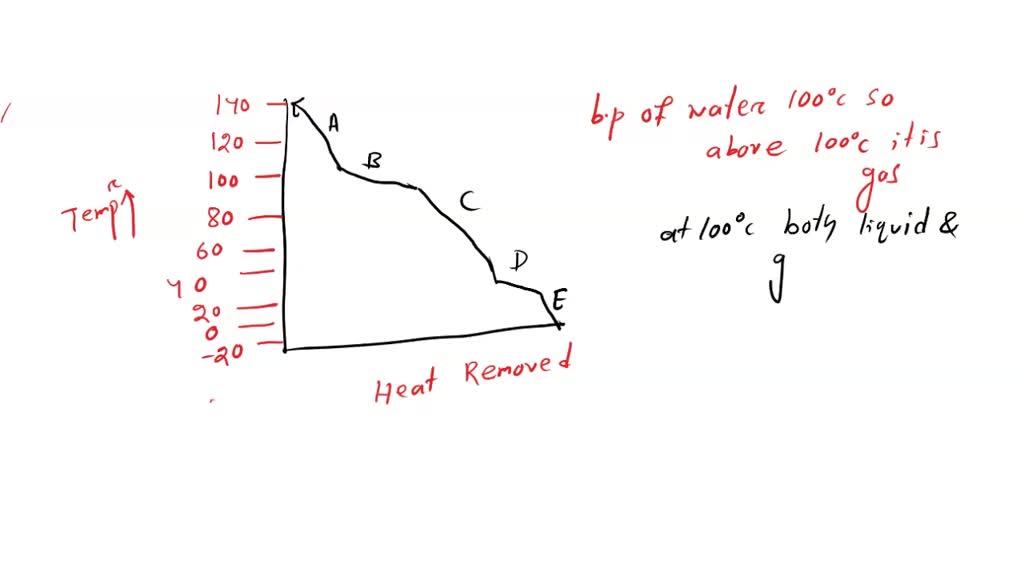 140
A
120
B
100
Tempr
80
C
60
D
40
E
20
0
-20
Heat Removed
b.p of water 100°c so
above 100°c it is
gas
at 100°c both liquid &
g